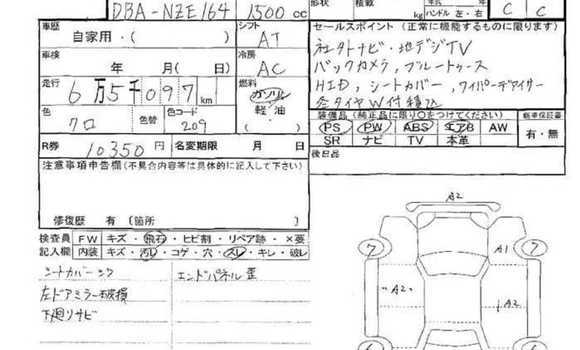 DBA-NZE164 1500 cc
kg ハンドル 左・右 C C
車歴 自家用・( ) シフト AT
セールスポイント(正常に機能するものに限ります)
社外ナビ・地デジTV
車検 年 月( ) 冷房 AC
バックカメラ, ブルートゥース
走行 6万5千097km 燃料 ガソリン 軽油
HID, シートカバー, ワイパーデアイサー
冬タイヤW付積込
色 クロ 色替 色コード 209
装備品(純正品に限り○をつけてください) 新車保証書
PS PW ABS エアB AW 有・無
SR ナビ TV 本革
R券 10350円 名変期限 月 日
後日品
注意事項申告欄(不具合内容等は具体的に記入して下さい)
修復歴 有 (箇所 )
検査員 FW キズ・飛石・ヒビ割・リペア跡・×要
記入欄 内装 キズ・汚レ・コゲ・穴・スレ・キレ・破レ
シートカバー エンドパネル歪
左ドアミラー破損
下廻りサビ
A2
7 7
A1
A2 A2